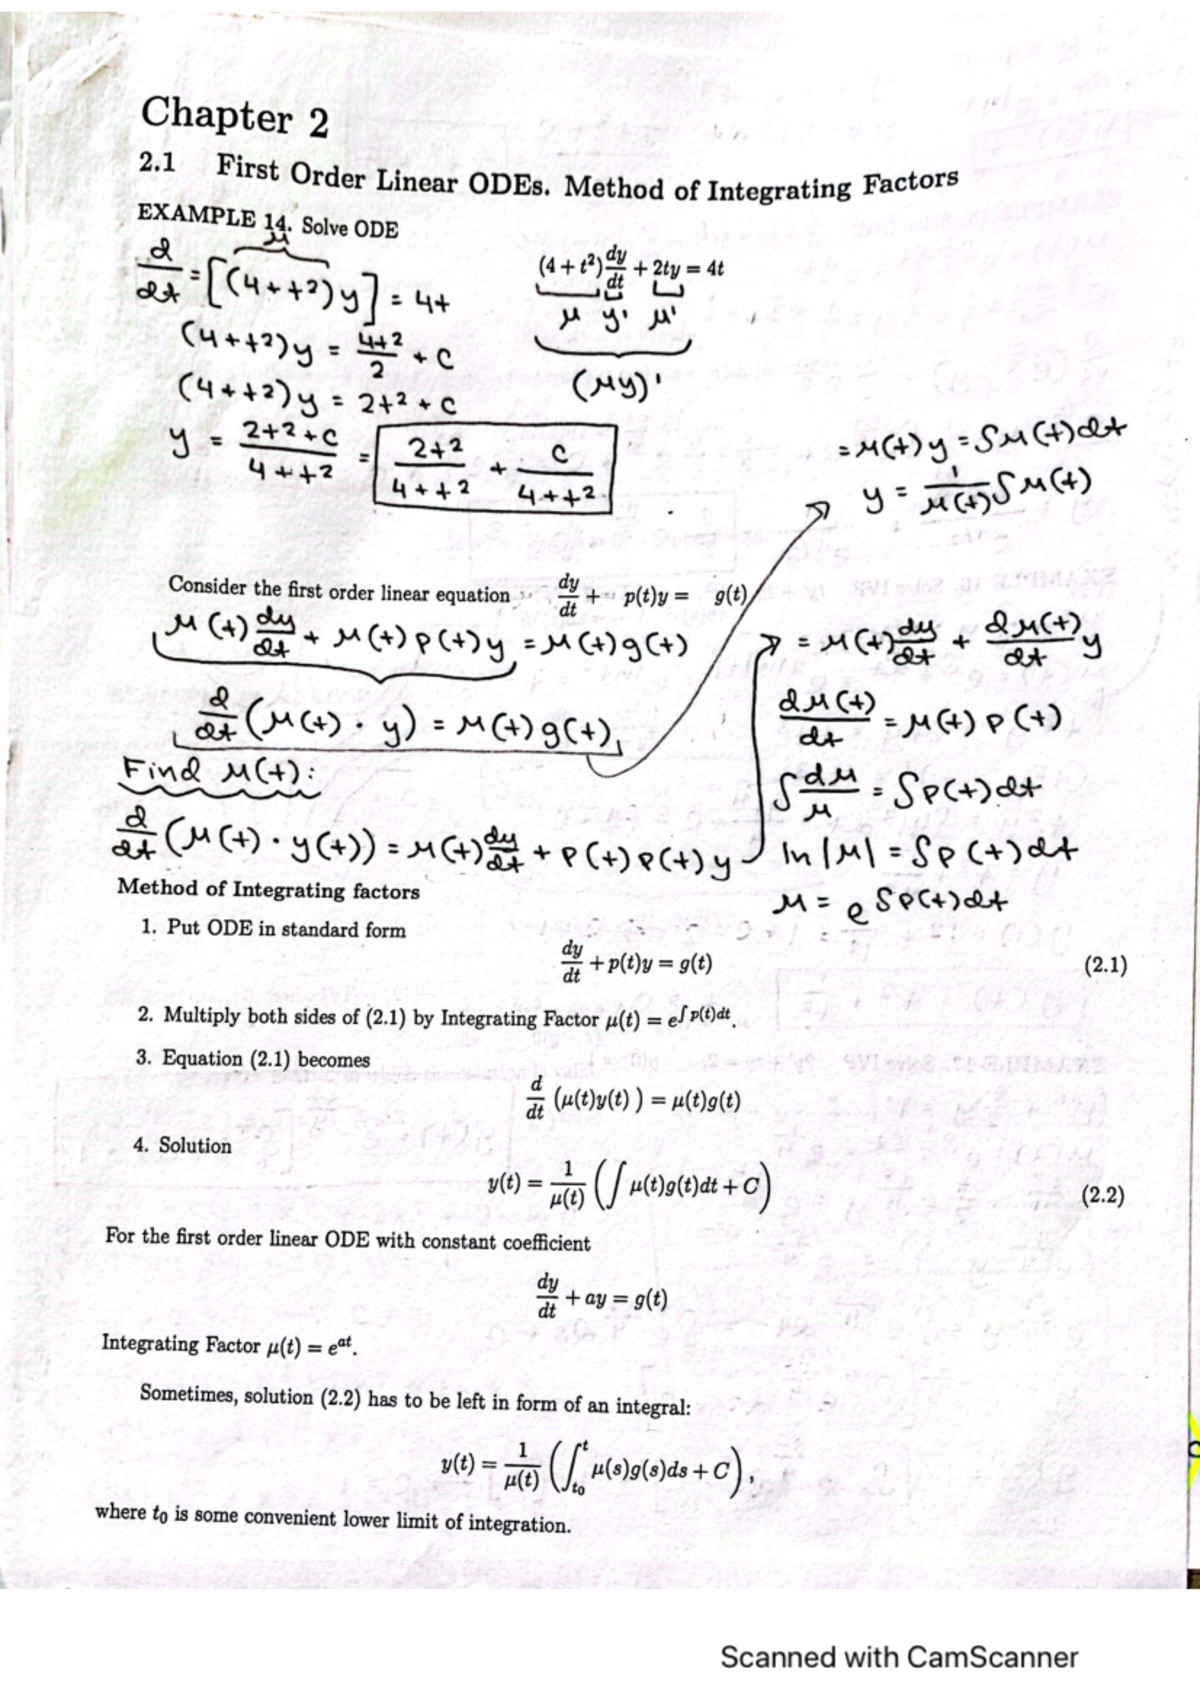 Chapter 2
2.1 First Order Linear ODEs. Method of Integrating Factors
EXAMPLE 14. Solve ODE
(4 + t²) dy/dt + 2ty = 4t
μ y' μ'
(μy)'
μ
d/dt = [(4+t²)y] = 4t
(4+t²)y = 4t²/2 + C
(4+t²)y = 2t² + C
y = (2t²+C)/(4+t²) = 2t²/(4+t²) + C/(4+t²)
= μ(t)y = ∫μ(t)dt
y = 1/μ(t) ∫μ(t)
Consider the first order linear equation dy/dt + p(t)y = g(t)
μ(t) dy/dt + μ(t)p(t)y = μ(t)g(t)
d/dt (μ(t) · y) = μ(t)g(t)
Find μ(t):
d/dt (μ(t) · y(t)) = μ(t) dy/dt + P(t)P(t)y
= μ(t) dy/dt + dμ(t)/dt y
dμ(t)/dt = μ(t)P(t)
∫ dμ/μ = ∫P(t)dt
ln|μ| = ∫P(t)dt
μ = e^∫P(t)dt
Method of Integrating factors
1. Put ODE in standard form
dy/dt + p(t)y = g(t) (2.1)
2. Multiply both sides of (2.1) by Integrating Factor μ(t) = e^∫p(t)dt.
3. Equation (2.1) becomes
d/dt (μ(t)y(t)) = μ(t)g(t)
4. Solution
y(t) = 1/μ(t) (∫ μ(t)g(t)dt + C) (2.2)
For the first order linear ODE with constant coefficient
dy/dt + ay = g(t)
Integrating Factor μ(t) = e^at.
Sometimes, solution (2.2) has to be left in form of an integral:
y(t) = 1/μ(t) (∫_t₀^t μ(s)g(s)ds + C),
where t₀ is some convenient lower limit of integration.
Scanned with CamScanner